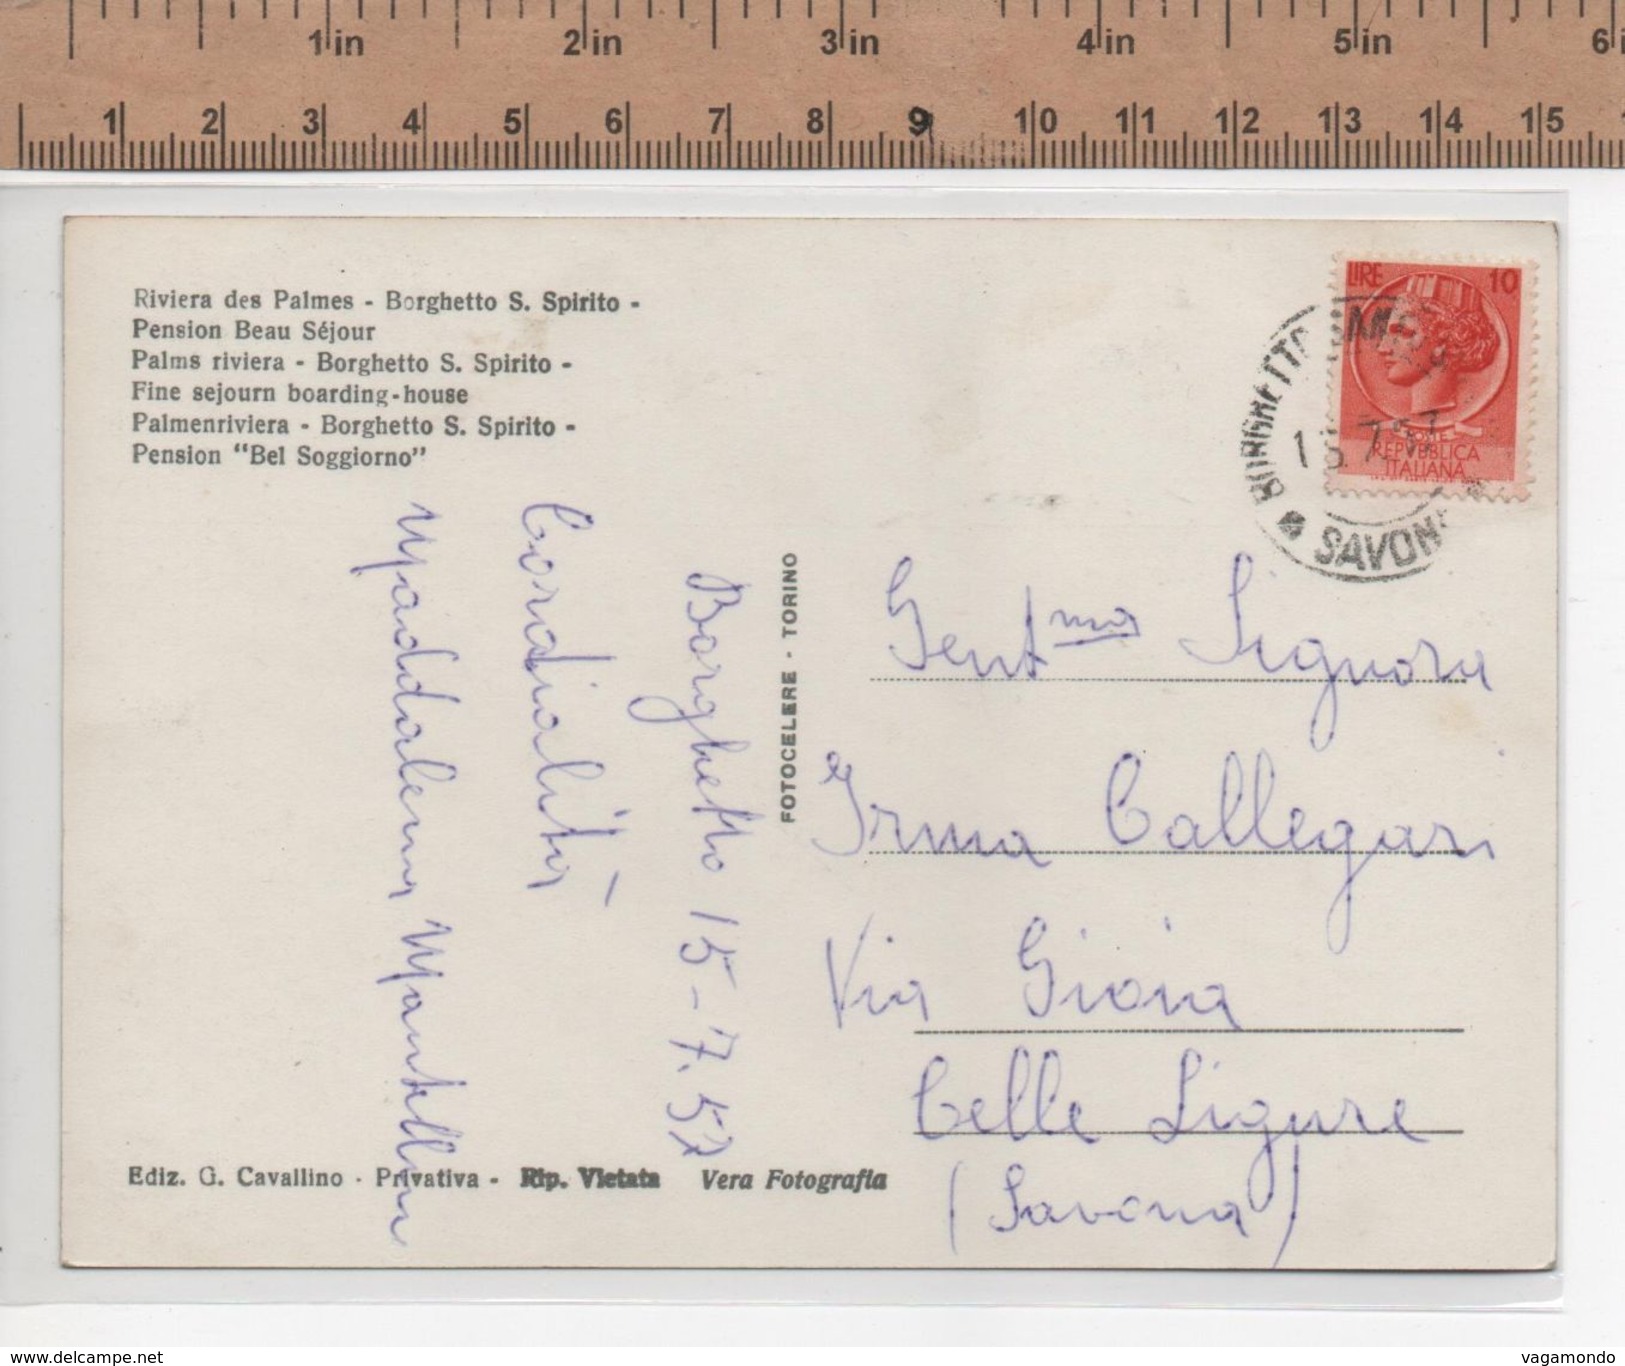 1 in 2 in 3 in 4 in 5 in 6 i
1 2 3 4 5 6 7 8 9 10 11 12 13 14 15
Riviera des Palmes - Borghetto S. Spirito -
Pension Beau Séjour
Palms riviera - Borghetto S. Spirito -
Fine sejourn boarding-house
Palmenriviera - Borghetto S. Spirito -
Pension "Bel Soggiorno"
LIRE 10
REPVBBLICA
ITALIANA
BORGHETTO
SAVON
Borghetto 15-7.57
Cordialità
Maddalena Mantellini
FOTOCELERE - TORINO
Gent.ma Signora
Irma Callegari
Via Gioia
Celle Ligure
(Savona)
Ediz. G. Cavallino - Privativa - Rip. Vietata Vera Fotografia
delcampe.net
vagamondo